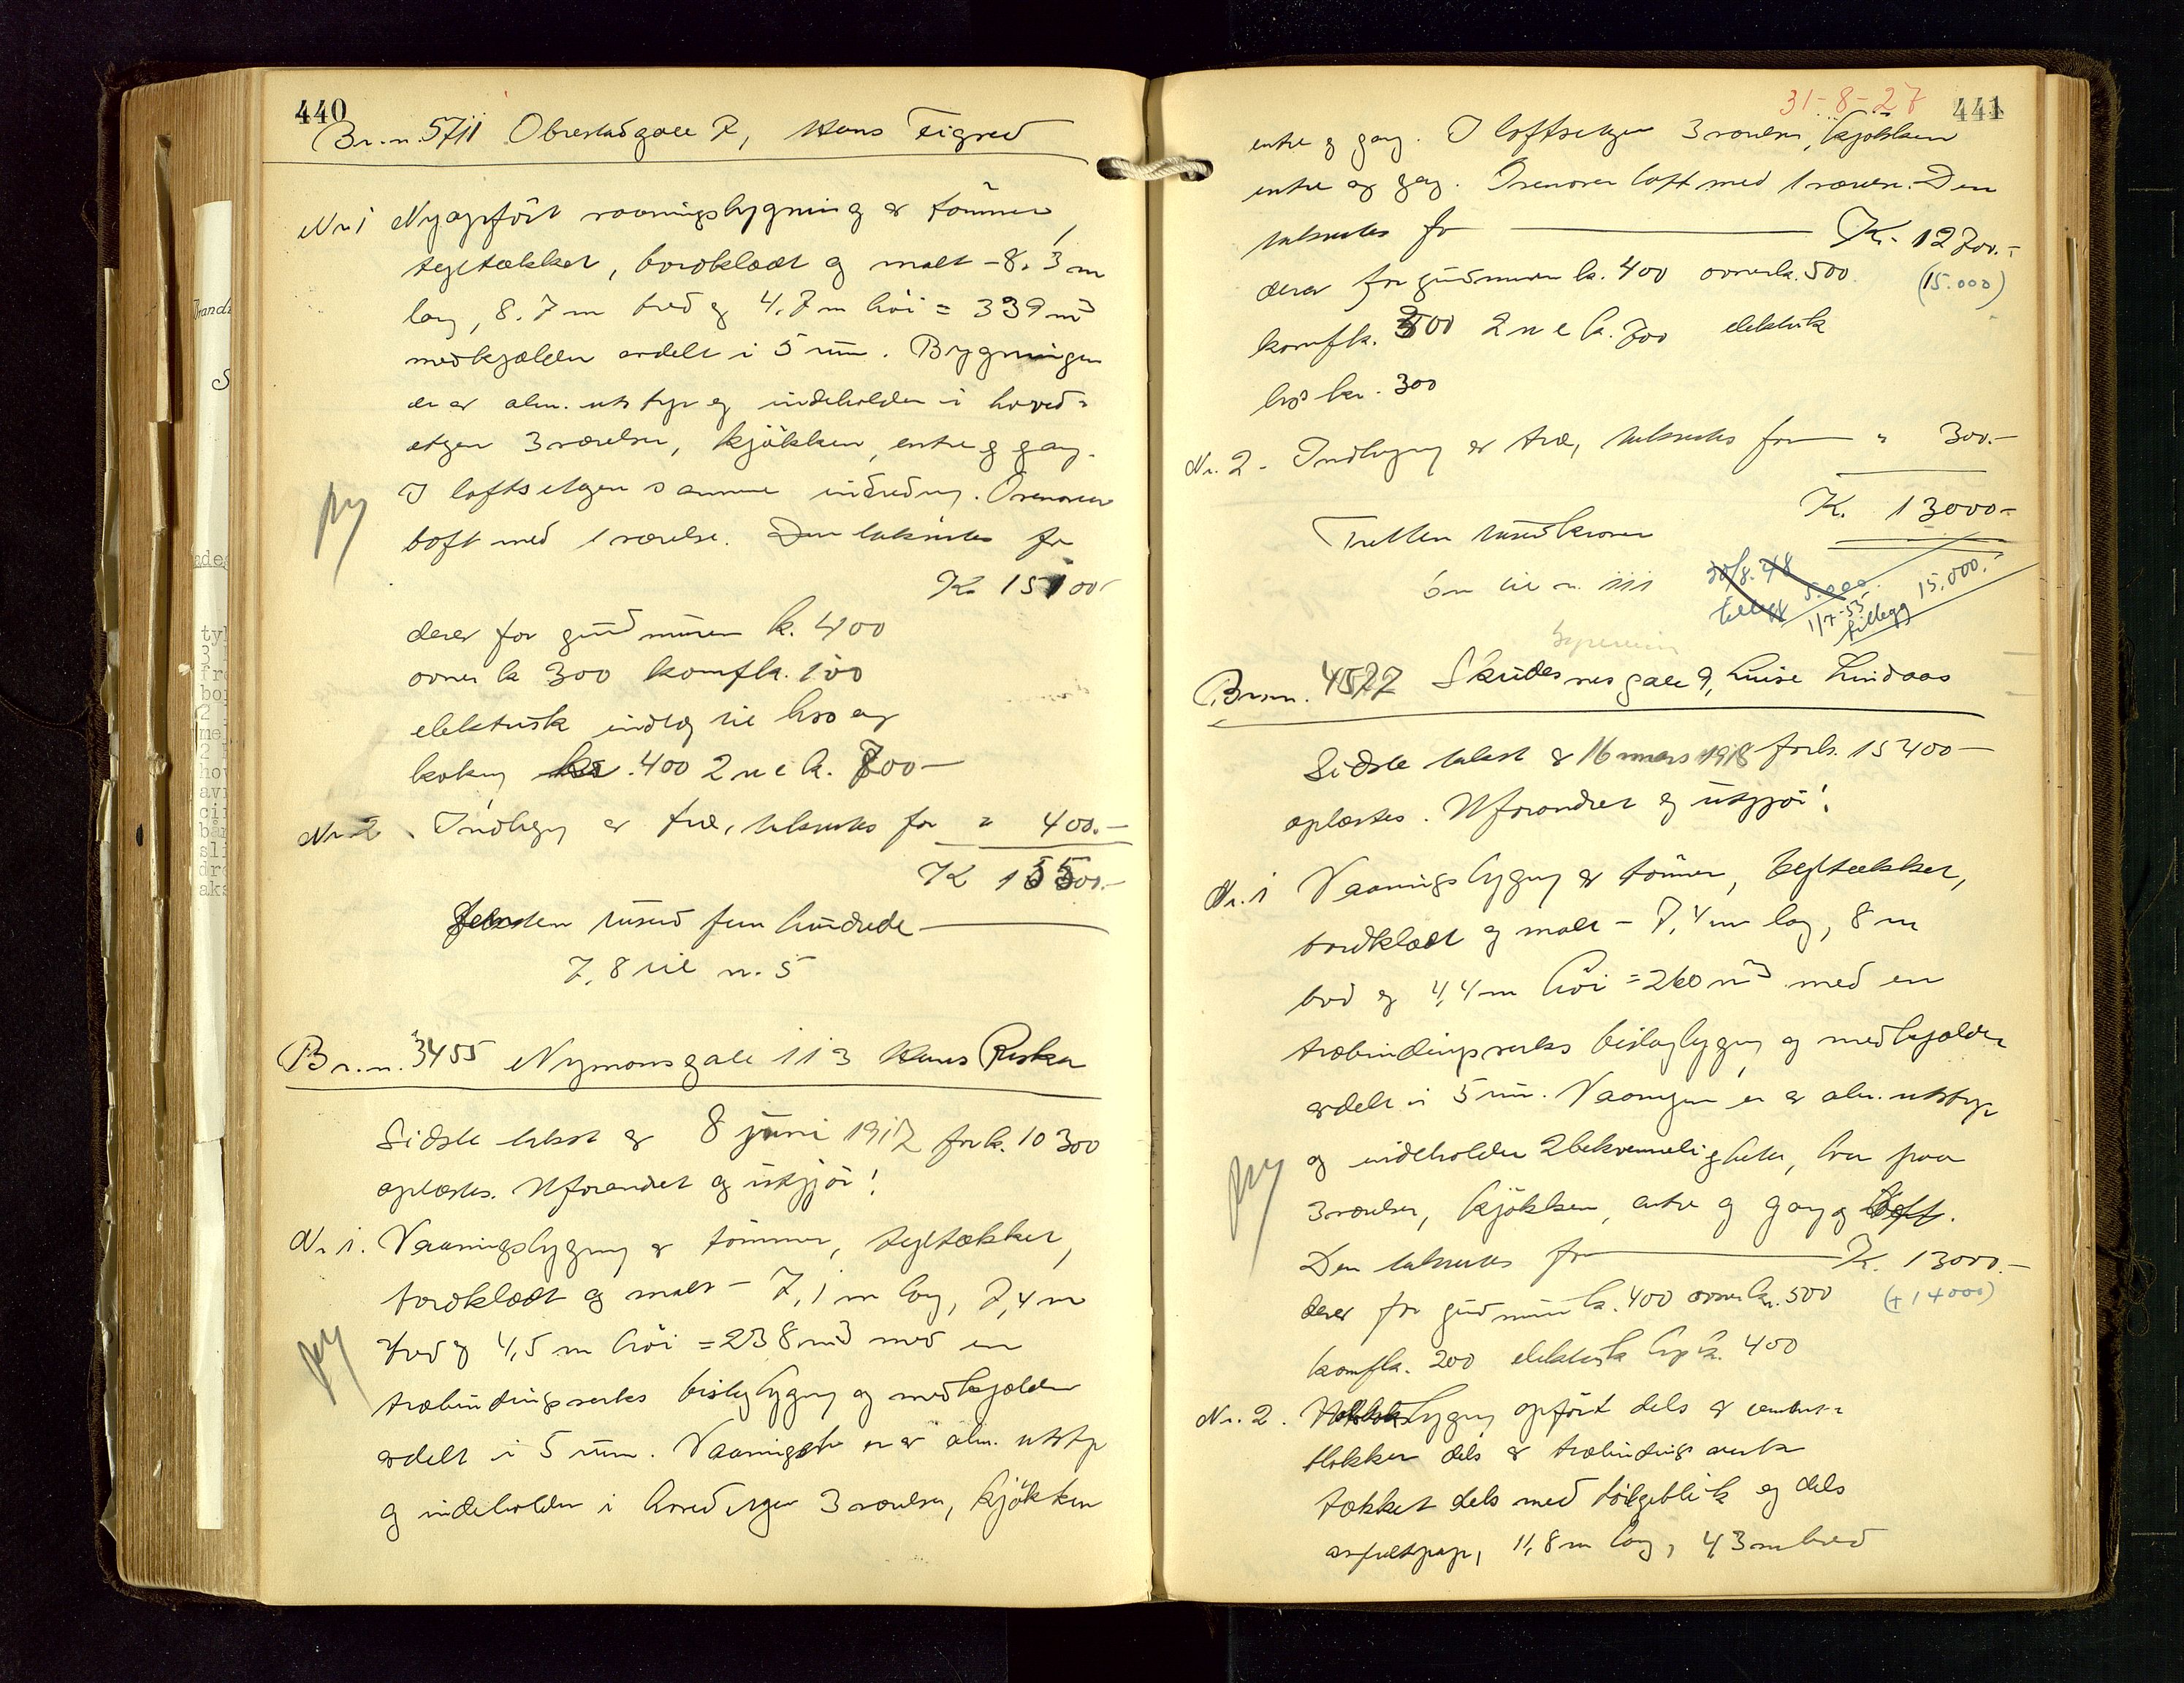 440
Br.n. 5711 Obrestadgate 7, Hans Tigred
Nr 1 Nyopført vaaningsbygning av tømmer,
tegltækket, bordklædt og malt - 8,3 m
lang, 8,7 m bred og 4,7 m høi = 339 m³
med kjælder avdelt i 5 rum. Bygningen
er av alm. utstyr og indeholder i hoved-
etagen 3 værelser, kjøkken, entre og gang.
I loftsetagen samme indredning. Ovenover
loft med 1 værelse. Den takseres for
K. 15100
derav for grundmuren k. 400
ovner k 300 komf k. 100
elektrisk indlæg til lys og
kokning kr. 400 2 w c k. 700 —
Nr. 2. Indhegn av træ, takseres for " 400.—
K 15500.—
Femten tusend fem hundrede —
7, 8 til n. 5
Br.n. 3455 Nymansgate 113 Hans Riska
Sidste takst av 8 juni 1912 for k. 10300
oplæstes. Uforandret og utgjør!
Nr 1. Vaaningsbygning av tømmer, tegltækket,
bordklædt og malt - 7,1 m lang, 7,4 m
bred og 4,5 m høi = 238 m³ med en
træbindingsverks bislagbygning og med kjælder
avdelt i 5 rum. Vaaningen er av alm. utstyr
og indeholder i hovedetagen 3 værelser, kjøkken
31-8-27 441
entre og gang. I loftsetagen 3 værelser, kjøkken
entre og gang. Ovenover loft med 1 værelse. Den
takseres for — K. 12700.-
derav for grundmuren k. 400 ovner k. 500 (15.000)
komf k. 300 2 w c k. 700 elektrisk
lys kr. 300
Nr. 2 - Indhegn av træ, takseres for — " 300.—
K. 13000-
Tretten tusend kroner
6 n til n. 111
30/8.48
tillegg 5.000.
1/7-55 tillegg 15.000.-
Br.n. 4527 Skudesnesgate 9, Luise Lindaas
Sidste takst av 16 mars 1918 for k. 15400 —
oplæstes. Uforandret og utgjør!
Nr. 1 Vaaningsbygning av tømmer, tegltækket,
bordklædt og malt - 7,4 m lang, 8 m
bred og 4,4 m høi = 260 m³ med en
træbindingsverks bislagbygning og med kjælder
avdelt i 5 rum. Vaaningen er av alm. utstyr
og indeholder 2 bekvemmeligheter, hver paa
3 værelser, kjøkken, entre og gang og loft.
Den takseres for — K. 13000.—
derav for grundmur k. 400 ovner k. 500 (+ 14000)
komf k. 200 elektrisk lys k. 400
Nr. 2. bygning opført dels av cement-
blokker dels av træbindingsverk
tækket dels med bølgeblik og dels
asfaltpap, 11,8 m lang, 4,3 m bred